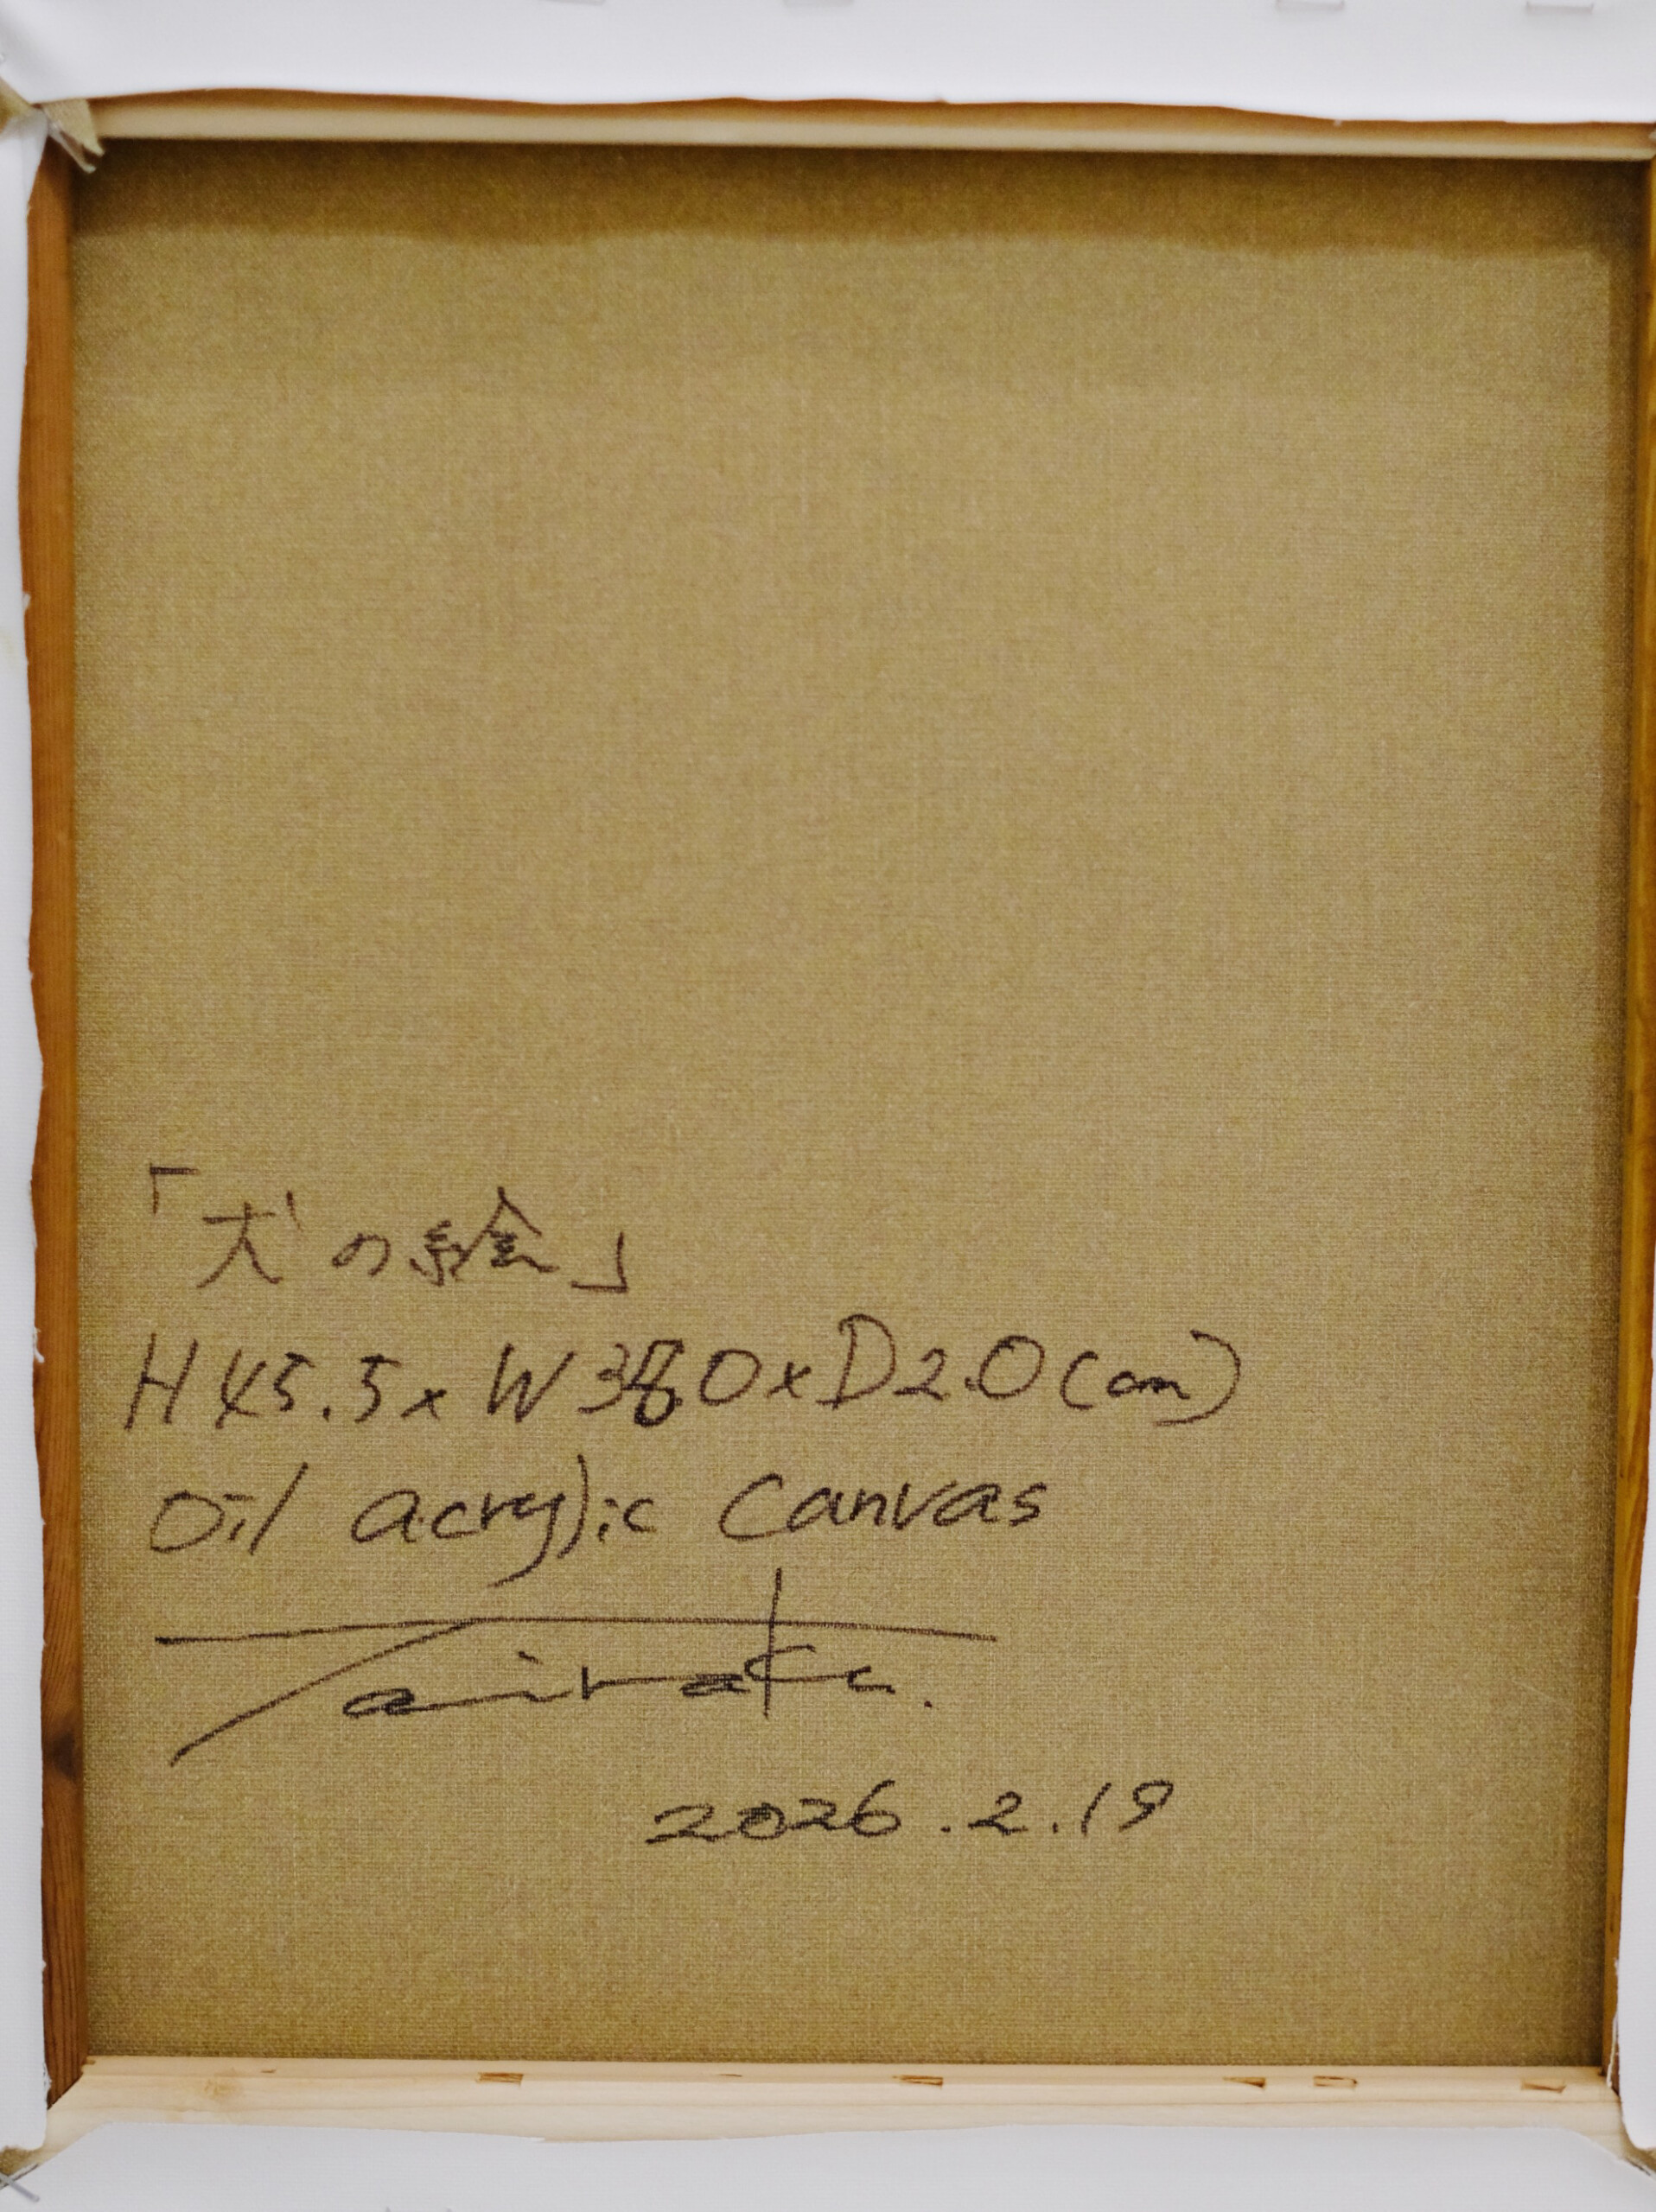 「犬の絵」
H45.5x W38.0xD2.0(cm)
Oil acrylic Canvas
2026.2.19